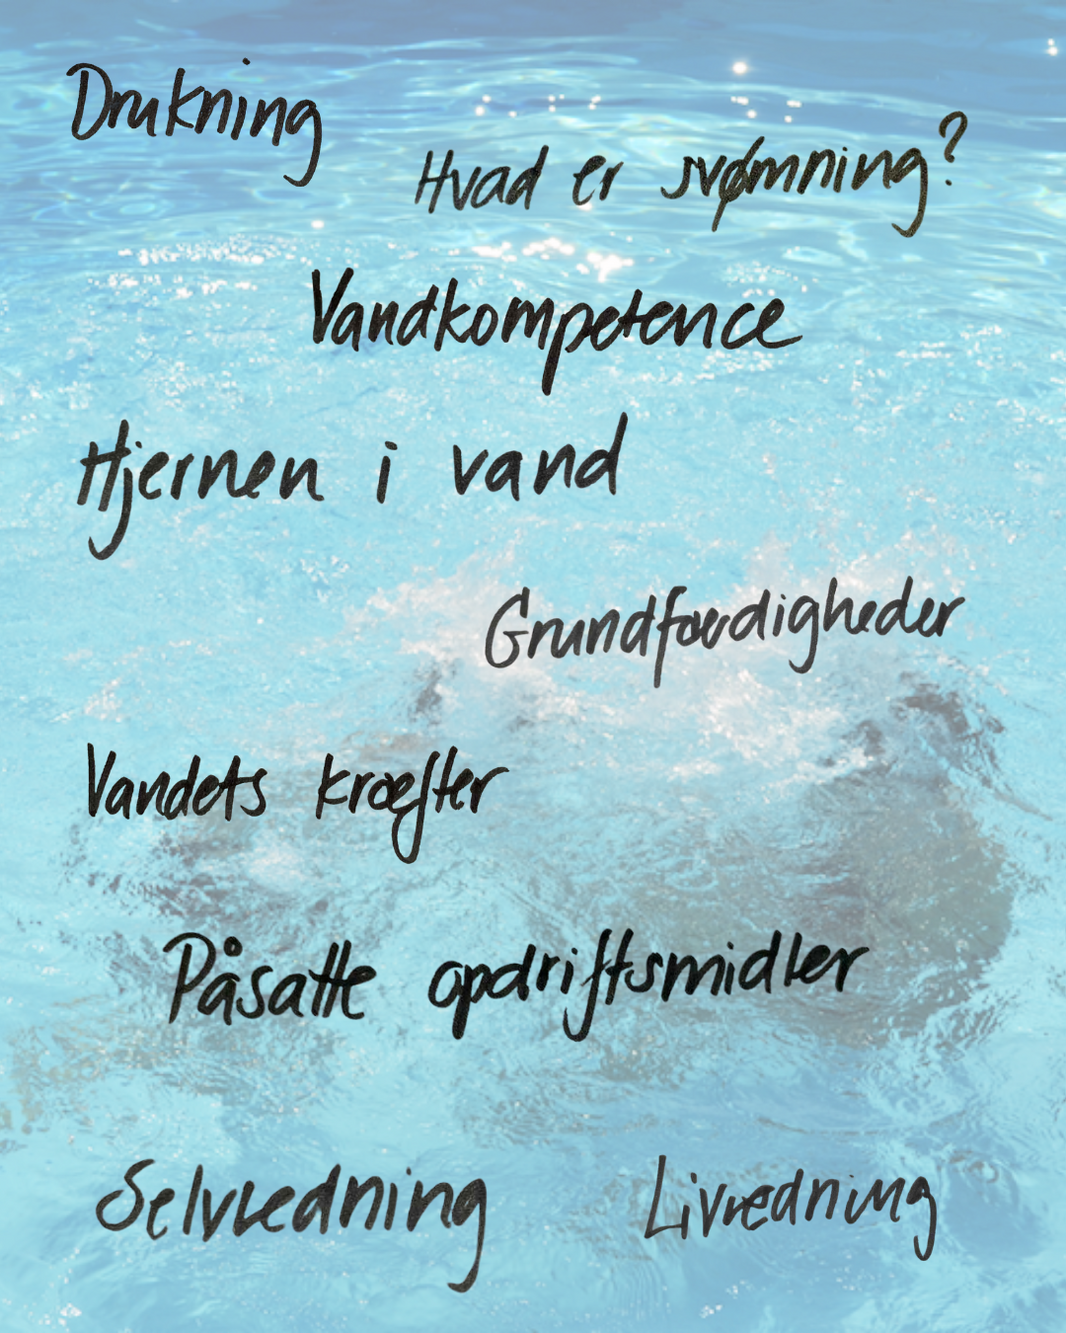 Drukning
Hvad er svømning?
Vandkompetence
Hjernen i vand
Grundfærdigheder
Vandets kræfter
Påsatte opdriftsmidler
Selvredning Livredning